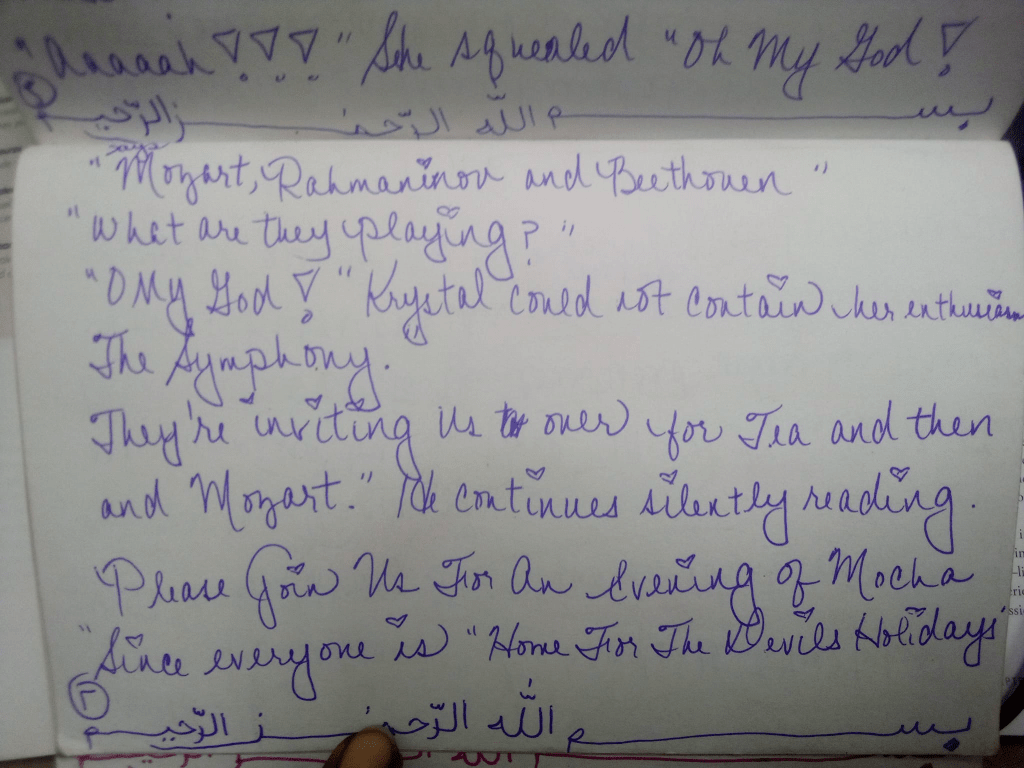 "Aaaaah!!!" She squealed "Oh My God!
بسم الله الرّحمن الرّحيم
"Mozart, Rahmaninov and Beethoven"
"What are they playing?"
"O My God!" Krystal could not contain her enthusiasm
The Symphony.
They're inviting us over for Tea and then
and Mozart." He continues silently reading.
"Please Join Us For An Evening of Mocha
"Since everyone is "Home For The Devils Holidays"
٢
بسم الله الرّحمن الرّحيم